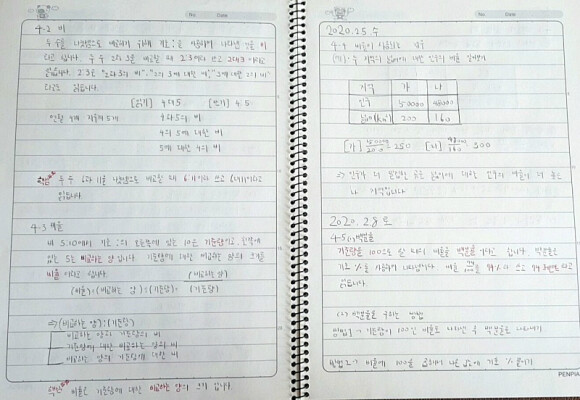 4-2 비
두 수를 나눗셈으로 비교하기 위해 기호 :을 사용하여 나타낸 것을 비
라고 합니다. 두 수 2와 3을 비교할 때 2:3이라 쓰고 2대 3이라고
읽습니다. 2:3은 "2와 3의 비", "2의 3에 대한 비", "3에 대한 2의 비"
라고도 읽습니다.
[읽기] 4대 5 [쓰기] 4:5
4와 5의 비
4의 5에 대한 비
5에 대한 4의 비
두 수 6과 1을 나눗셈으로 비교할 때 6:1이라 쓰고
읽습니다
4-3 비율
비 5:10에서 기호 :의 오른쪽에 있는 10은 기준량이고 왼쪽에
있는 5는 비교하는 양입니다. 기준량에 대한 비교하는 양의 크기를
비율이라고 합니다. (비교하는 양)
(비율)=(비교하는 양):(기준량)= (기준량)
⇒ (비교하는 양):(기준량)
비교하는 양과 기준량의 비
기준량에 대한 비교하는 양의 비
비교하는 양의 기준량에 대한 비
비율은 기준량에 대한 비교하는 양의 크기 입니다.
No. Date
2020.2.5 수
4-4 비율이 사용되는
지역 가 나
인구 50000 48000
넓이(km²) 200 160
[가] 50000/200 = 250 [나] 48000/160 = 300
⇒ 인구가 더 밀집한 곳은 넓이에 대한 인구의 비율이 더 높은
나 지역입니다
2020. 2.8 토
4-5 (1) 백분율
기준량을 100으로 할 때의 비율을 백분율이라고 합니다. 백분율은
기호 %를 사용하여 나타냅니다. 비율 94/100를 94%라 쓰고 94퍼센트라고
읽습니다.
(2) 백분율로 구하는 방법
방법1 → 기준량이 100인 비율로 나타낸 후 백분율로 나타내기
방법2 → 비율에 100을 곱하여 나온 값에 기호 % 붙이기
PENPIA